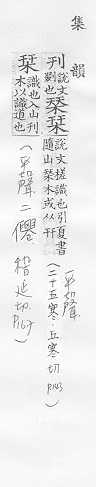 集韻
刊說文剟也栞𣓁說文槎識也引夏書隨山栞木或从幵
(平如聲二十五寒·丘寒切)
栞識也入山刊木以識道也
(平如聲二僊稽·延切)